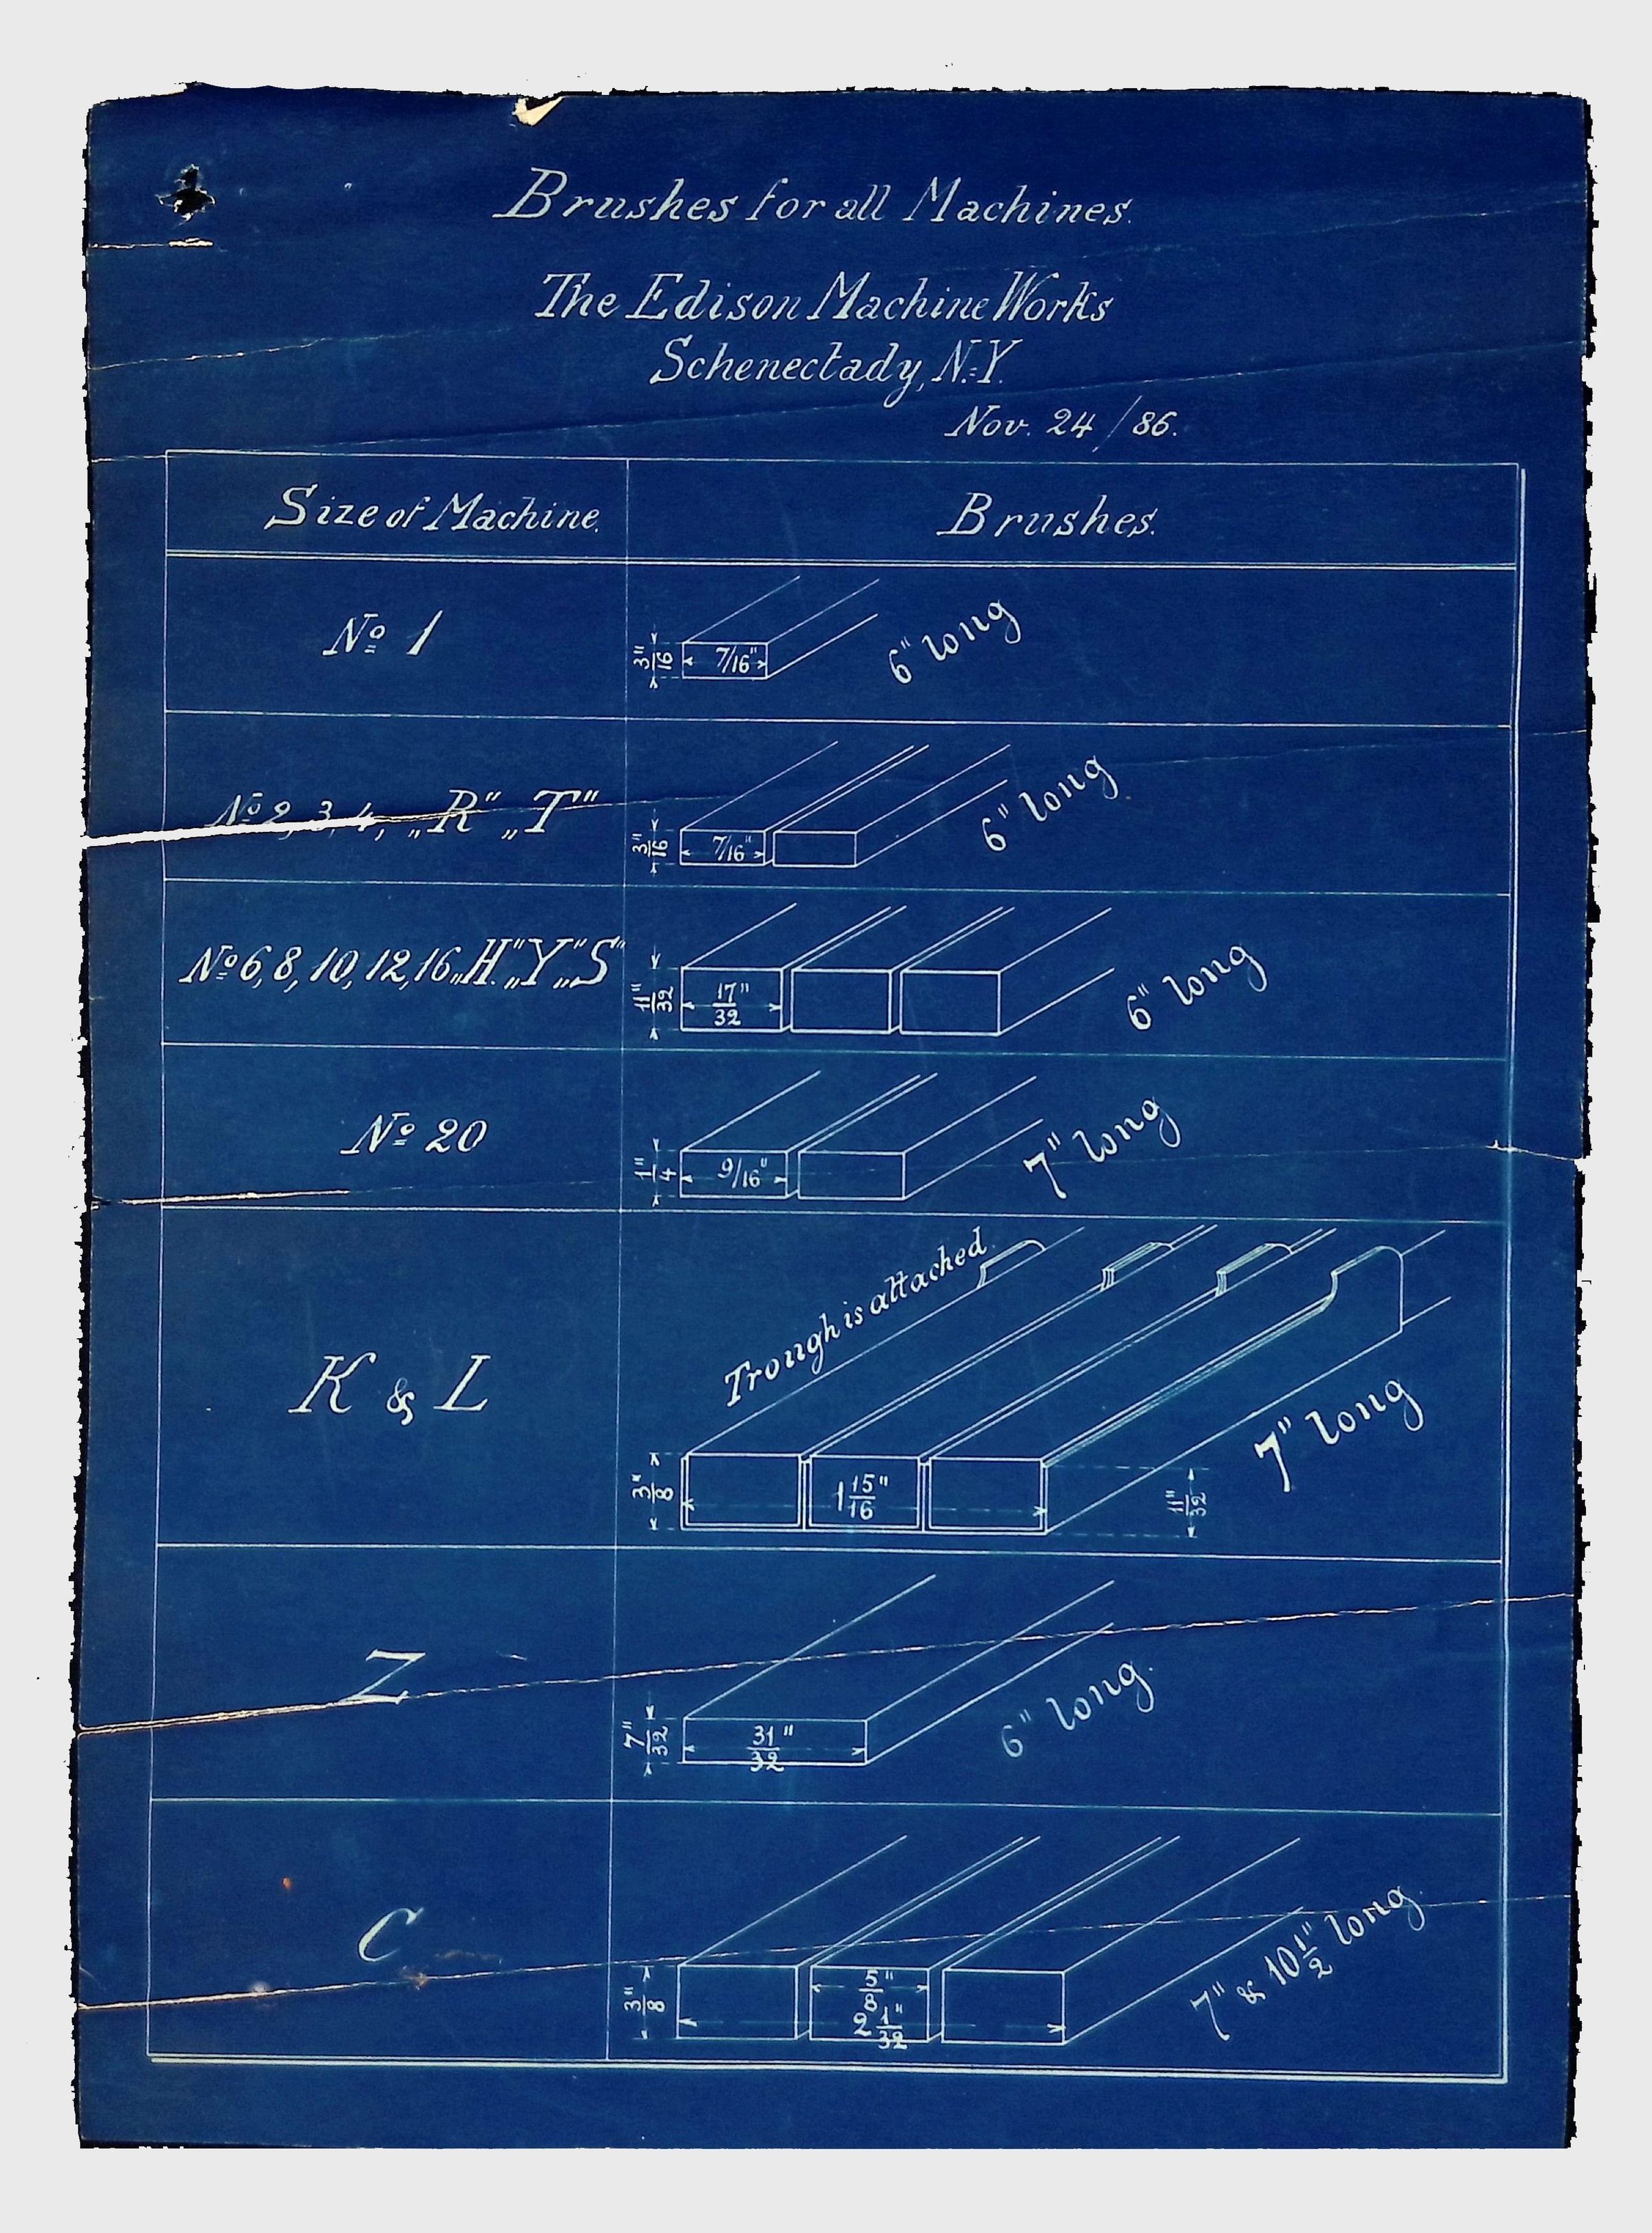 Brushes for all Machines.
The Edison Machine Works
Schenectady, N.=Y.
Nov. 24 / 86.
Size of Machine. Brushes.
No 1 3/16" 7/16" 6" long
No 2, 3, 4, „R” „T” 3/16" 7/16" 6" long
No 6, 8, 10, 12, 16, „H.” „Y” „S” 11/32" 17/32" 6" long
No 20 1/4" 9/16" 7" long
Trough is attached.
K & L 3/8" 1 15/16" 11/32" 7" long
Z 7/32" 31/32" 6" long
C 3/8" 5/8" 2 1/32" 7" & 10 1/2" long